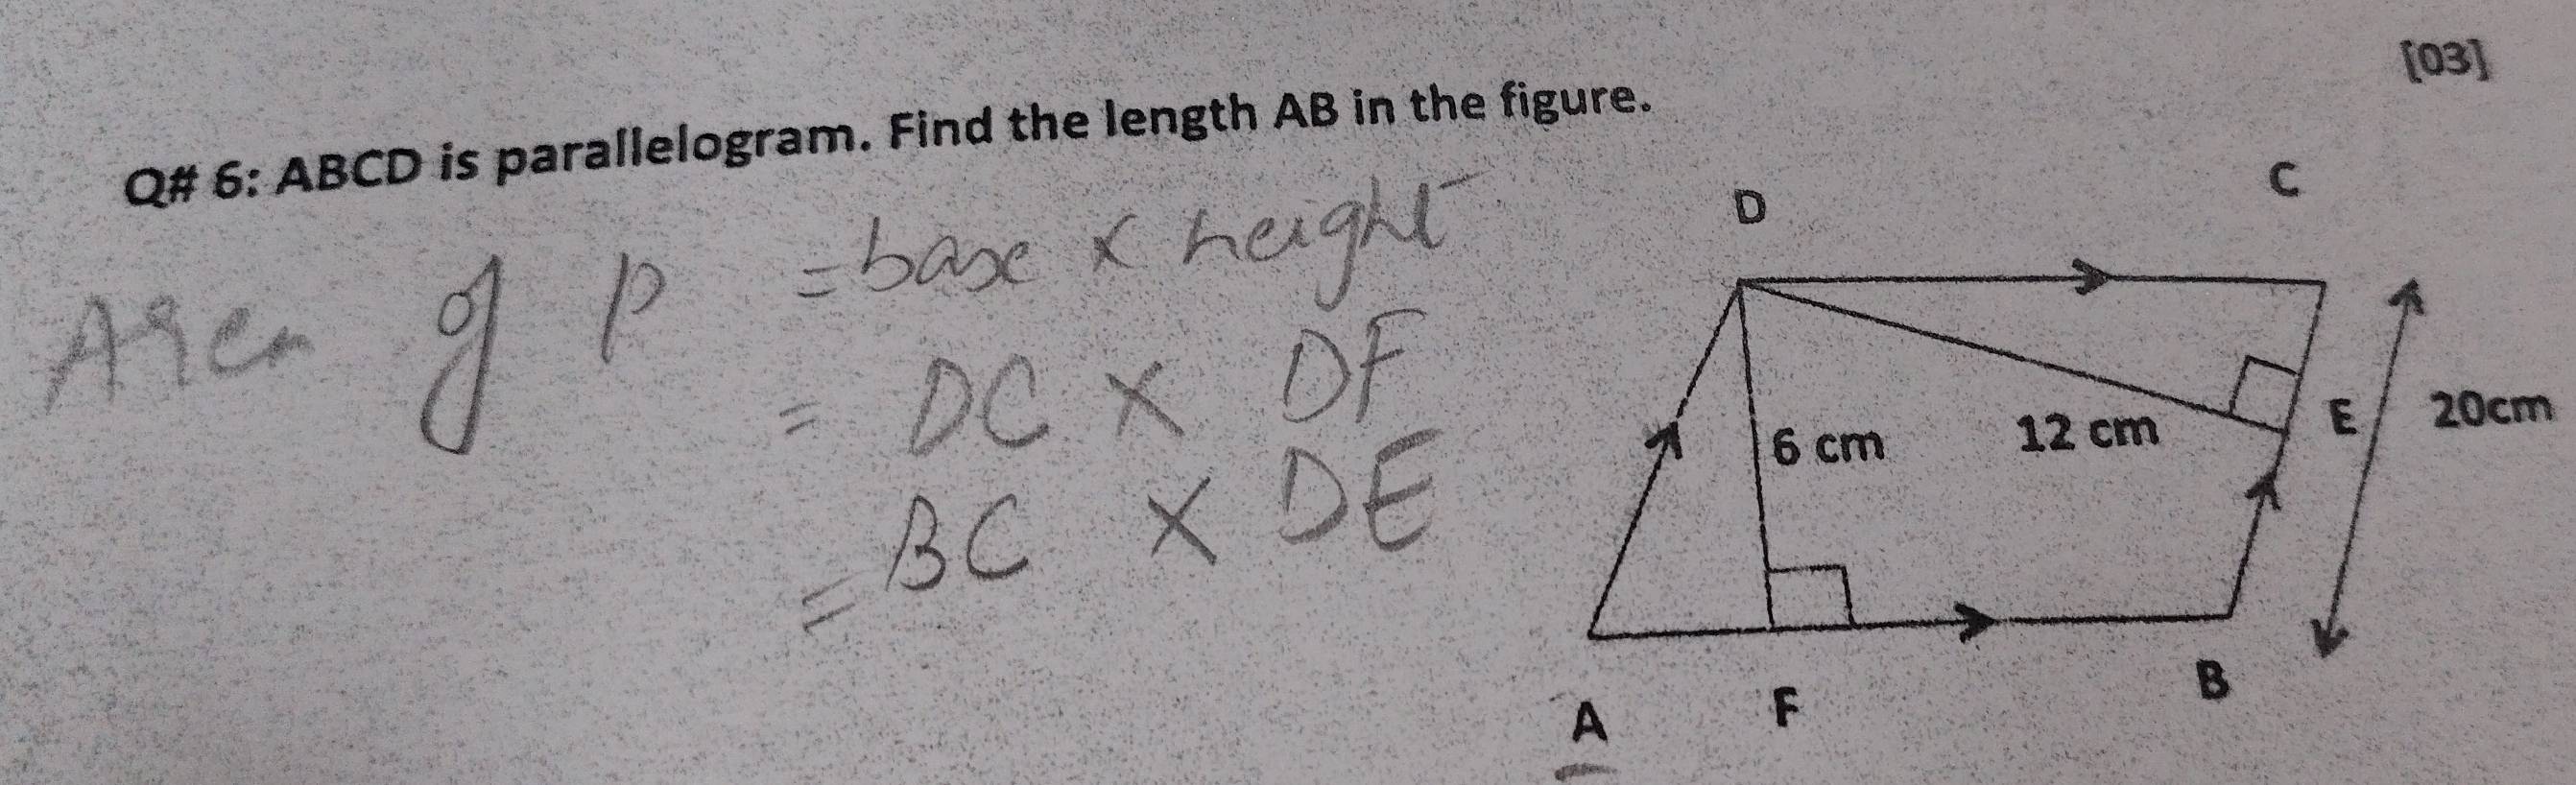 [03]
Q# 6: ABCD is parallelogram. Find the length AB in the figure.
Area of p = base x height
= DC x DF
= BC x DE
D
C
6 cm
12 cm
E
20cm
A
F
B